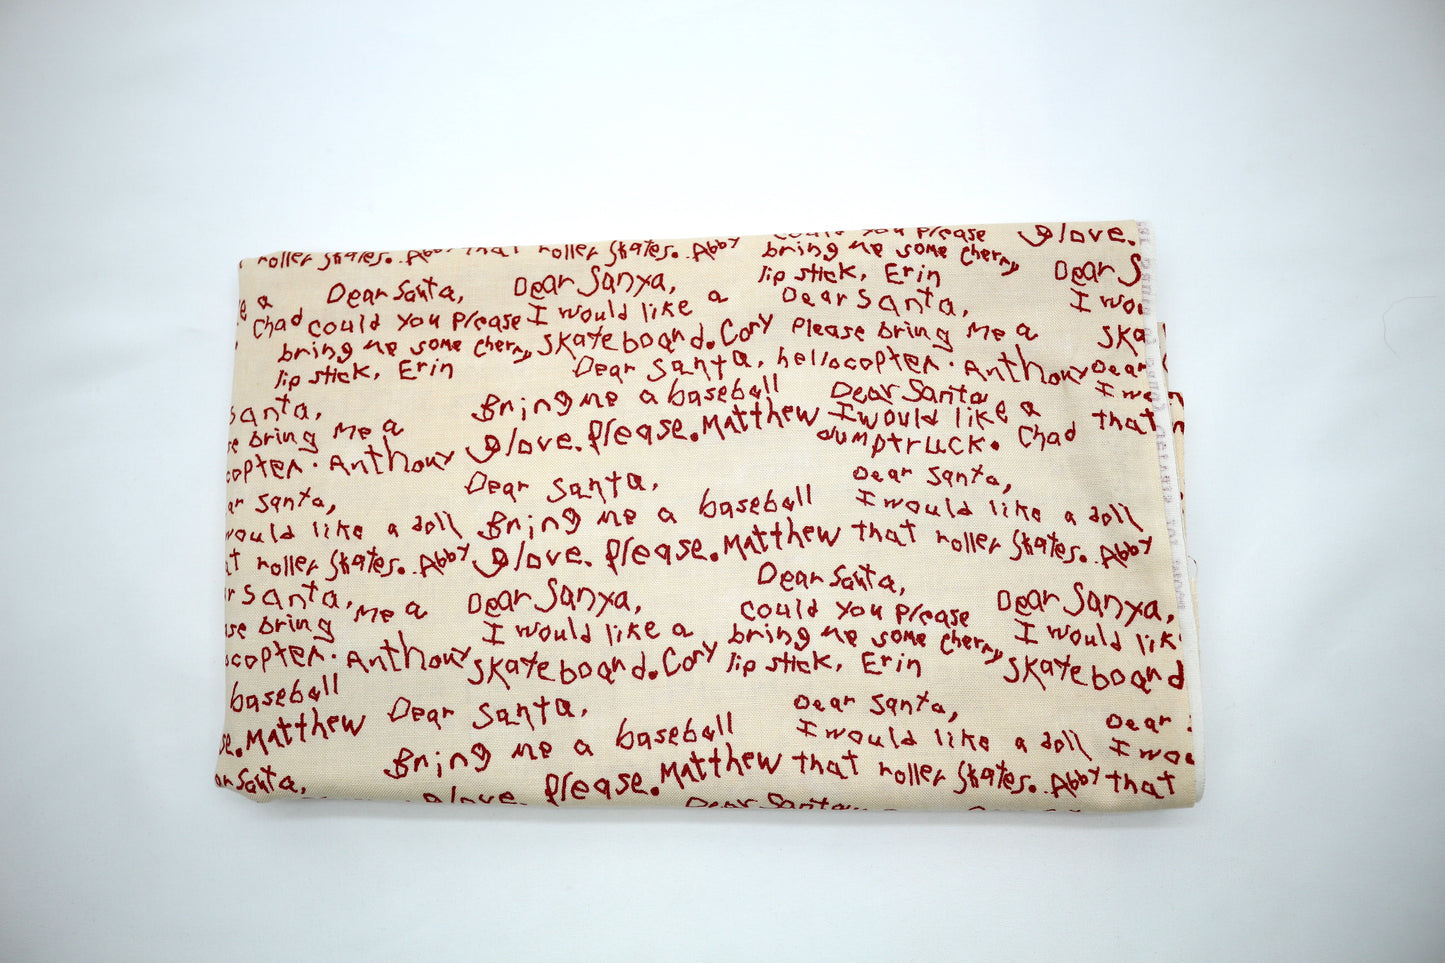 roller skates. Abby that roller skates. Abby
could you please
bring me some cherry
lip stick, Erin
glove.
Dear S
I wou
ska
e a
Chad
Dear Santa,
could you please
bring me some cherry
lip stick, Erin
Dear Sanya,
I would like a
skateboard. Cory
Dear Santa,
Please bring me a
hellocopter. Anthony
Dear Santa,
Bring me a baseball
glove. please. Matthew
Dear Santa
I would like a
dumptruck. Chad
Dear
I wo
that
Santa,
se bring me a
copter. Anthony
ar Santa,
would like a doll
at roller skates. Abby
Dear Santa,
Bring me a baseball
glove. please. Matthew
Dear Santa,
I would like a doll
that roller skates. Abby
r Santa,
se bring me a
ocopter. Anthony
Dear Sanya,
I would like a
skateboard. Cory
Dear Santa,
could you please
bring me some cherry
lip stick, Erin
Dear Sanya,
I would lik
skateboard
baseball
se. Matthew
Dear Santa,
Bring me a baseball
glove. please. Matthew
Dear Santa,
I would like a doll
that roller skates. Abby
Dear
I wou
that
ar Santa,
Dear Santa